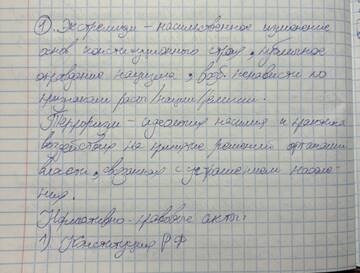 ① Экстремизм – насильственное изменение
основ конституционного строя, публичное
оправдание нацизма, возб. ненависти по
признакам расы/нации/религии.
Терроризм – идеология насилия и практика
воздействия на принятие решений органами
власти, связанная с устрашением населе-
ния.
Нормативно-правовые акты
1) Конституция РФ